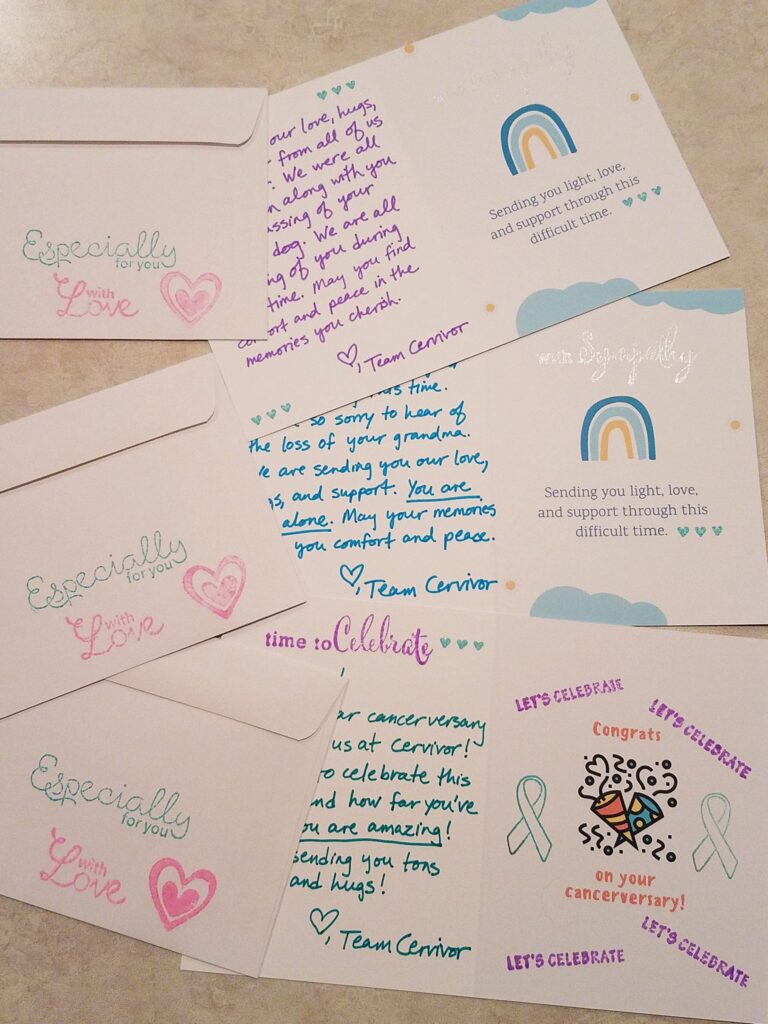 Especially
for you
with
Love
our love, hugs,
from all of us
We were all
along with you
assing of your
dog. We are all
ng of you during
time. May you find
comfort and peace in the
memories you cherish.
Team Cervivor
Sending you light, love,
and support through this
difficult time.
Especially
for you
with
Love
this time.
so sorry to hear of
the loss of your grandma.
e are sending you our love,
s, and support. You are
alone. May your memories
you comfort and peace.
Team Cervivor
with Sympathy
Sending you light, love,
and support through this
difficult time.
Especially
for you
with
Love
time to Celebrate
ar cancerversary
us at Cervivor!
to celebrate this
nd how far you've
ou are amazing!
sending you tons
and hugs!
Team Cervivor
LET'S CELEBRATE
LET'S CELEBRATE
Congrats
on your
cancerversary!
LET'S CELEBRATE
LET'S CELEBRATE